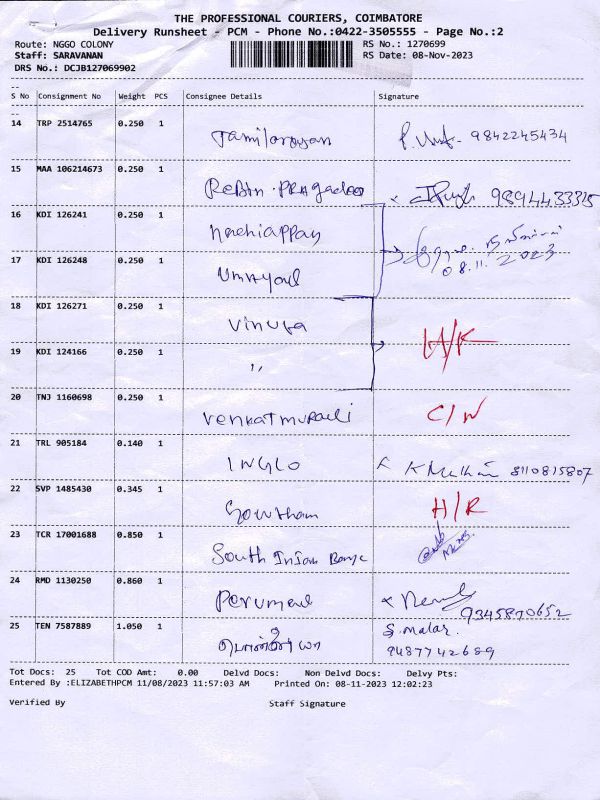 THE PROFESSIONAL COURIERS, COIMBATORE
Delivery Runsheet - PCM - Phone No.:0422-3505555 - Page No.:2
Route: NGGO COLONY RS No.: 1270699
Staff: SARAVANAN RS Date: 08-Nov-2023
DRS No.: DCJB127069902
S No Consignment No Weight PCS Consignee Details Signature
14 TRP 2514765 0.250 1 Tamilarasan 9842245434
15 MAA 106214673 0.250 1 9894433325
16 KDI 126241 0.250 1 Nachiappan
08.11.2023
17 KDI 126248 0.250 1 Umayal
18 KDI 126271 0.250 1 Vinuta
19 KDI 124166 0.250 1 "
20 TNJ 1160698 0.250 1 Venkatmurali C/W
21 TRL 905184 0.140 1 INGLO 8110815807
22 SVP 1485430 0.345 1 Gowtham H/R
23 TCR 17001688 0.850 1 South Indian Bank
24 RMD 1130250 0.860 1 Perumal 9345870652
25 TEN 7587889 1.050 1 S. Malar.
9487742689
Tot Docs: 25 Tot COD Amt: 0.00 Delvd Docs: Non Delvd Docs: Delvy Pts:
Entered By :ELIZABETHPCM 11/08/2023 11:57:03 AM Printed On: 08-11-2023 12:02:23
Verified By Staff Signature